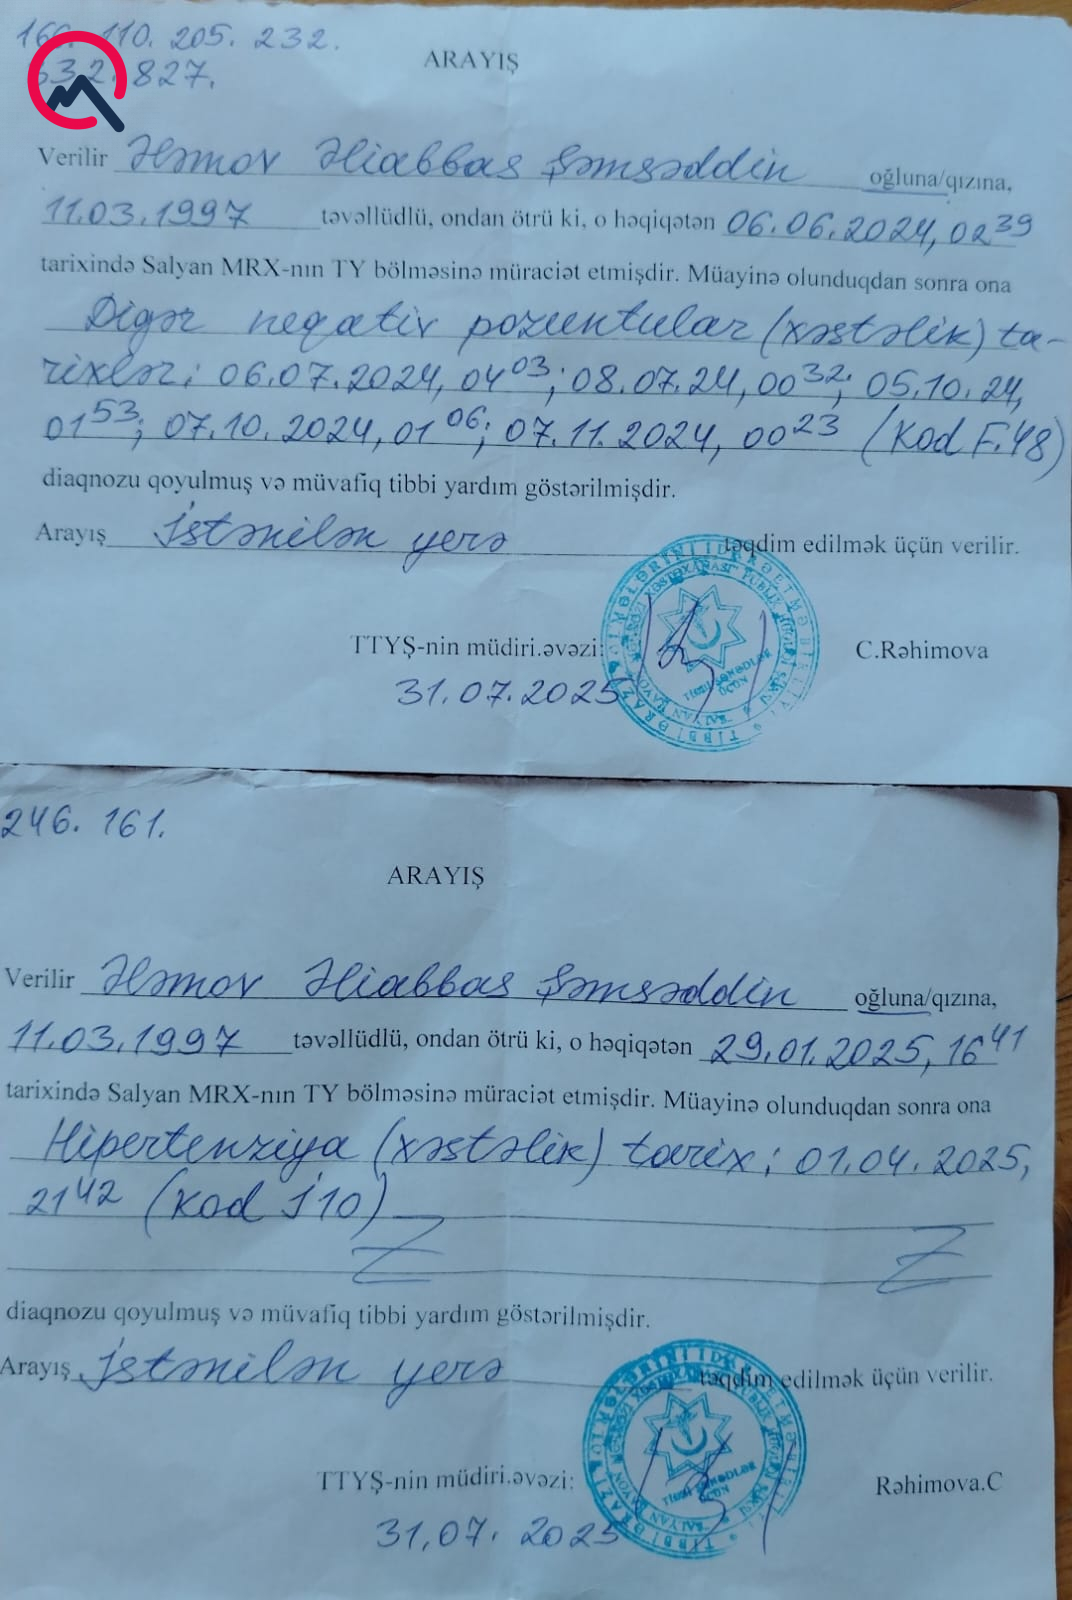 166. 110. 205. 232.
532. 827.
ARAYIŞ
Verilir Ələmov Əliabbas Şəmsəddin oğluna/qızına,
11.03.1997 təvəllüdlü, ondan ötrü ki, o həqiqətən 06.06.2024, 02 39
tarixində Salyan MRX-nın TY bölməsinə müraciət etmişdir. Müayinə olunduqdan sonra ona
Digər neqativ pozuntular (xəstəlik) ta-
rixlər; 06.07.2024, 04 03; 08.07.24, 00 32; 05.10.24,
01 53; 07.10.2024, 01 06; 07.11.2024, 00 23 (Kod F.48)
diaqnozu qoyulmuş və müvafiq tibbi yardım göstərilmişdir.
Arayış istənilən yerə təqdim edilmək üçün verilir.
TTYŞ-nin müdiri.əvəzi: C.Rəhimova
31.07.2025
246. 161.
ARAYIŞ
Verilir Ələmov Əliabbas Şəmsəddin oğluna/qızına,
11.03.1997 təvəllüdlü, ondan ötrü ki, o həqiqətən 29.01.2025, 16 41
tarixində Salyan MRX-nın TY bölməsinə müraciət etmişdir. Müayinə olunduqdan sonra ona
Hipertenziya (xəstəlik) tarix; 01.04.2025,
21 42 (kod İ10)
diaqnozu qoyulmuş və müvafiq tibbi yardım göstərilmişdir.
Arayış istənilən yerə təqdim edilmək üçün verilir.
TTYŞ-nin müdiri.əvəzi: Rəhimova.C
31.07.2025